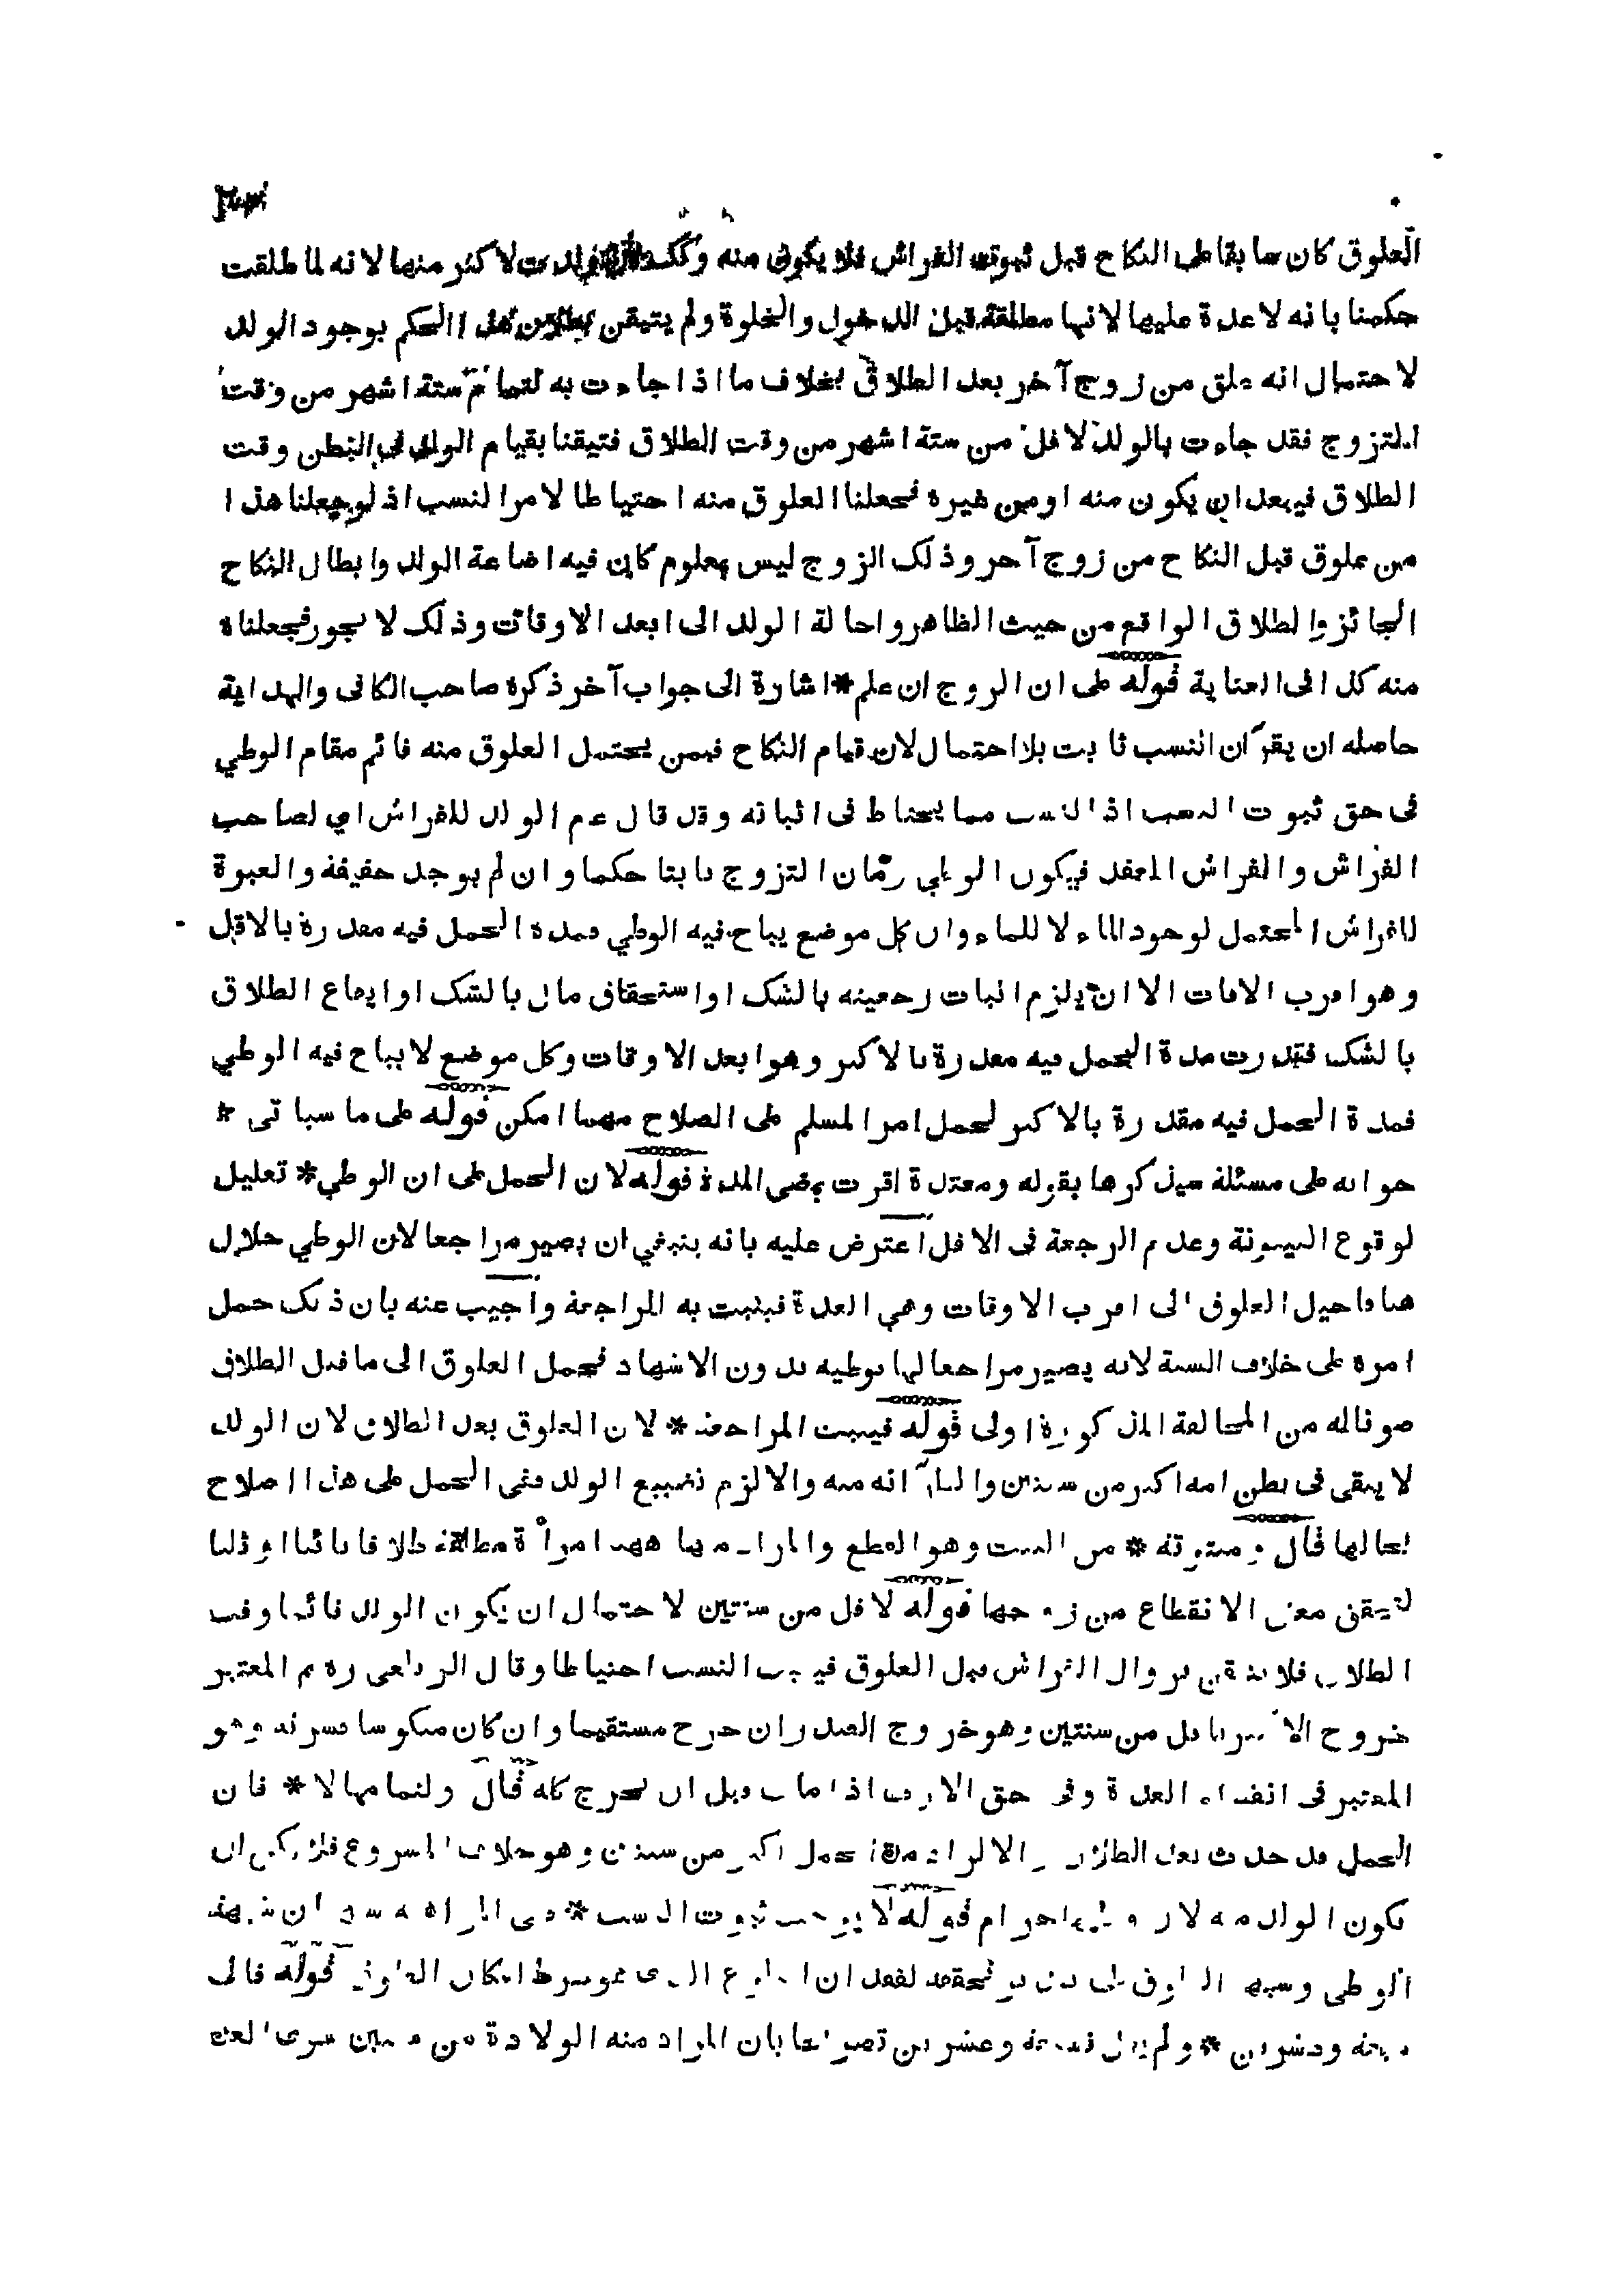 العلوق كان سابقا على النكاح قبل ثبوت الفراش فلا يكون منه وكذا ولدت لاكثر منها لانه لما طلقت
حكمنا بانه لا عدة عليها لانها مطلقة قبل الدخول والخلوة ولم يتيقن بطلان هذا الحكم بوجود الولد
لاحتمال انه علق من زوج آخر بعد الطلاق بخلاف ما اذا جاءت به لتمام ستة اشهر من وقت
التزوج فقد جاءت بالولد لاقل من ستة اشهر من وقت الطلاق فتيقنا بقيام الولد في البطن وقت
الطلاق فبعد ان يكون منه او من غيره فجعلنا العلوق منه احتياطا لامر النسب اذ لو جعلنا هذا
من علوق قبل النكاح من زوج آخر وذلك الزوج ليس بمعلوم كان فيه اضاعة الولد وابطال النكاح
الجائز والطلاق الواقع من حيث الظاهر واحالة الولد الى ابعد الاوقات وذلك لا يجوز فجعلناه
منه كذا في العناية قوله على ان الزوج ان علم * اشارة الى جواب آخر ذكره صاحب الكافي والهداية
حاصله ان يقرّ ان النسب ثابت بلا احتمال لان قيام النكاح فيمن يحتمل العلوق منه قائم مقام الوطي
في حق ثبوت النسب اذ النسب مما يحتاط في اثباته وقد قال عم الولد للفراش اي لصاحب
الفراش والفراش العقد فيكون الوطي زمان التزوج ثابتا حكما وان لم يوجد حقيقة والعبرة
للفراش المحتمل لوجود الماء لا للماء وان كل موضع يباح فيه الوطي فمدة الحمل فيه مقدرة بالاقل
وهو اقرب الاوقات الا ان يلزم اثبات رجعيته بالشك او استحقاق مال بالشك او ايقاع الطلاق
بالشك فقدرت مدة الحمل فيه مقدرة بالاكثر وهو ابعد الاوقات وكل موضع لا يباح فيه الوطي
فمدة الحمل فيه مقدرة بالاكثر لحمل امر المسلم على الصلاح مهما امكن قوله على ما سياتي *
حوالة على مسئلة سيذكرها بقوله ومعتدة اقرت بمضي المدة قوله لان الحمل على ان الوطي * تعليل
لوقوع البينونة وعدم الرجعة في الاقل اعترض عليه بانه ينبغي ان يصير مراجعا لان الوطي حلال
هنا فاحيل العلوق الى اقرب الاوقات وهي العدة فيثبت به المراجعة واجيب عنه بان ذلك حمل
امره على خلاف السنة لانه يصير مراجعا لها بوطيه بدون الاشهاد فحمل العلوق الى ما قبل الطلاق
صوناله من المخالفة المذكورة اولى قوله فيثبت المراجعة * لان العلوق بعد الطلاق لان الولد
لا يبقى في بطن امه اكثر من سنتين والظاهر انه منه والا لزم تضييع الولد ففي الحمل على هذا اصلاح
لحالها قال ومبتوتة * من البت وهو القطع والمراد بها ههنا امرأة مطلقة طلاقا بائنا او ثلثا
لتحقق معنى الانقطاع من زوجها قوله لاقل من سنتين لاحتمال ان يكون الولد قائما وقت
الطلاق فلا يتيقن بزوال الفراش قبل العلوق فيثبت النسب احتياطا وقال الزيلعي ره م المعتبر
خروج الاكثر باقل من سنتين وهو خروج الصدر ان خرج مستقيما وان كان منكوسا فسرته وهو
المعتبر في انقضاء العدة وفي حق الارث اذا مات قبل ان يخرج كله قال ولتمامها لا * فان
الحمل قد حدث بعد الطلاق والا لزاد مدة حمل اكثر من سنتين وهو خلاف المشروع فلا يمكن ان
يكون الولد منه لان وطيها حرام قوله لا يوجب ثبوت النسب *
الوطي وسبهه قوله قال في
وعشرين * ولم بان المراد منه الولادة من